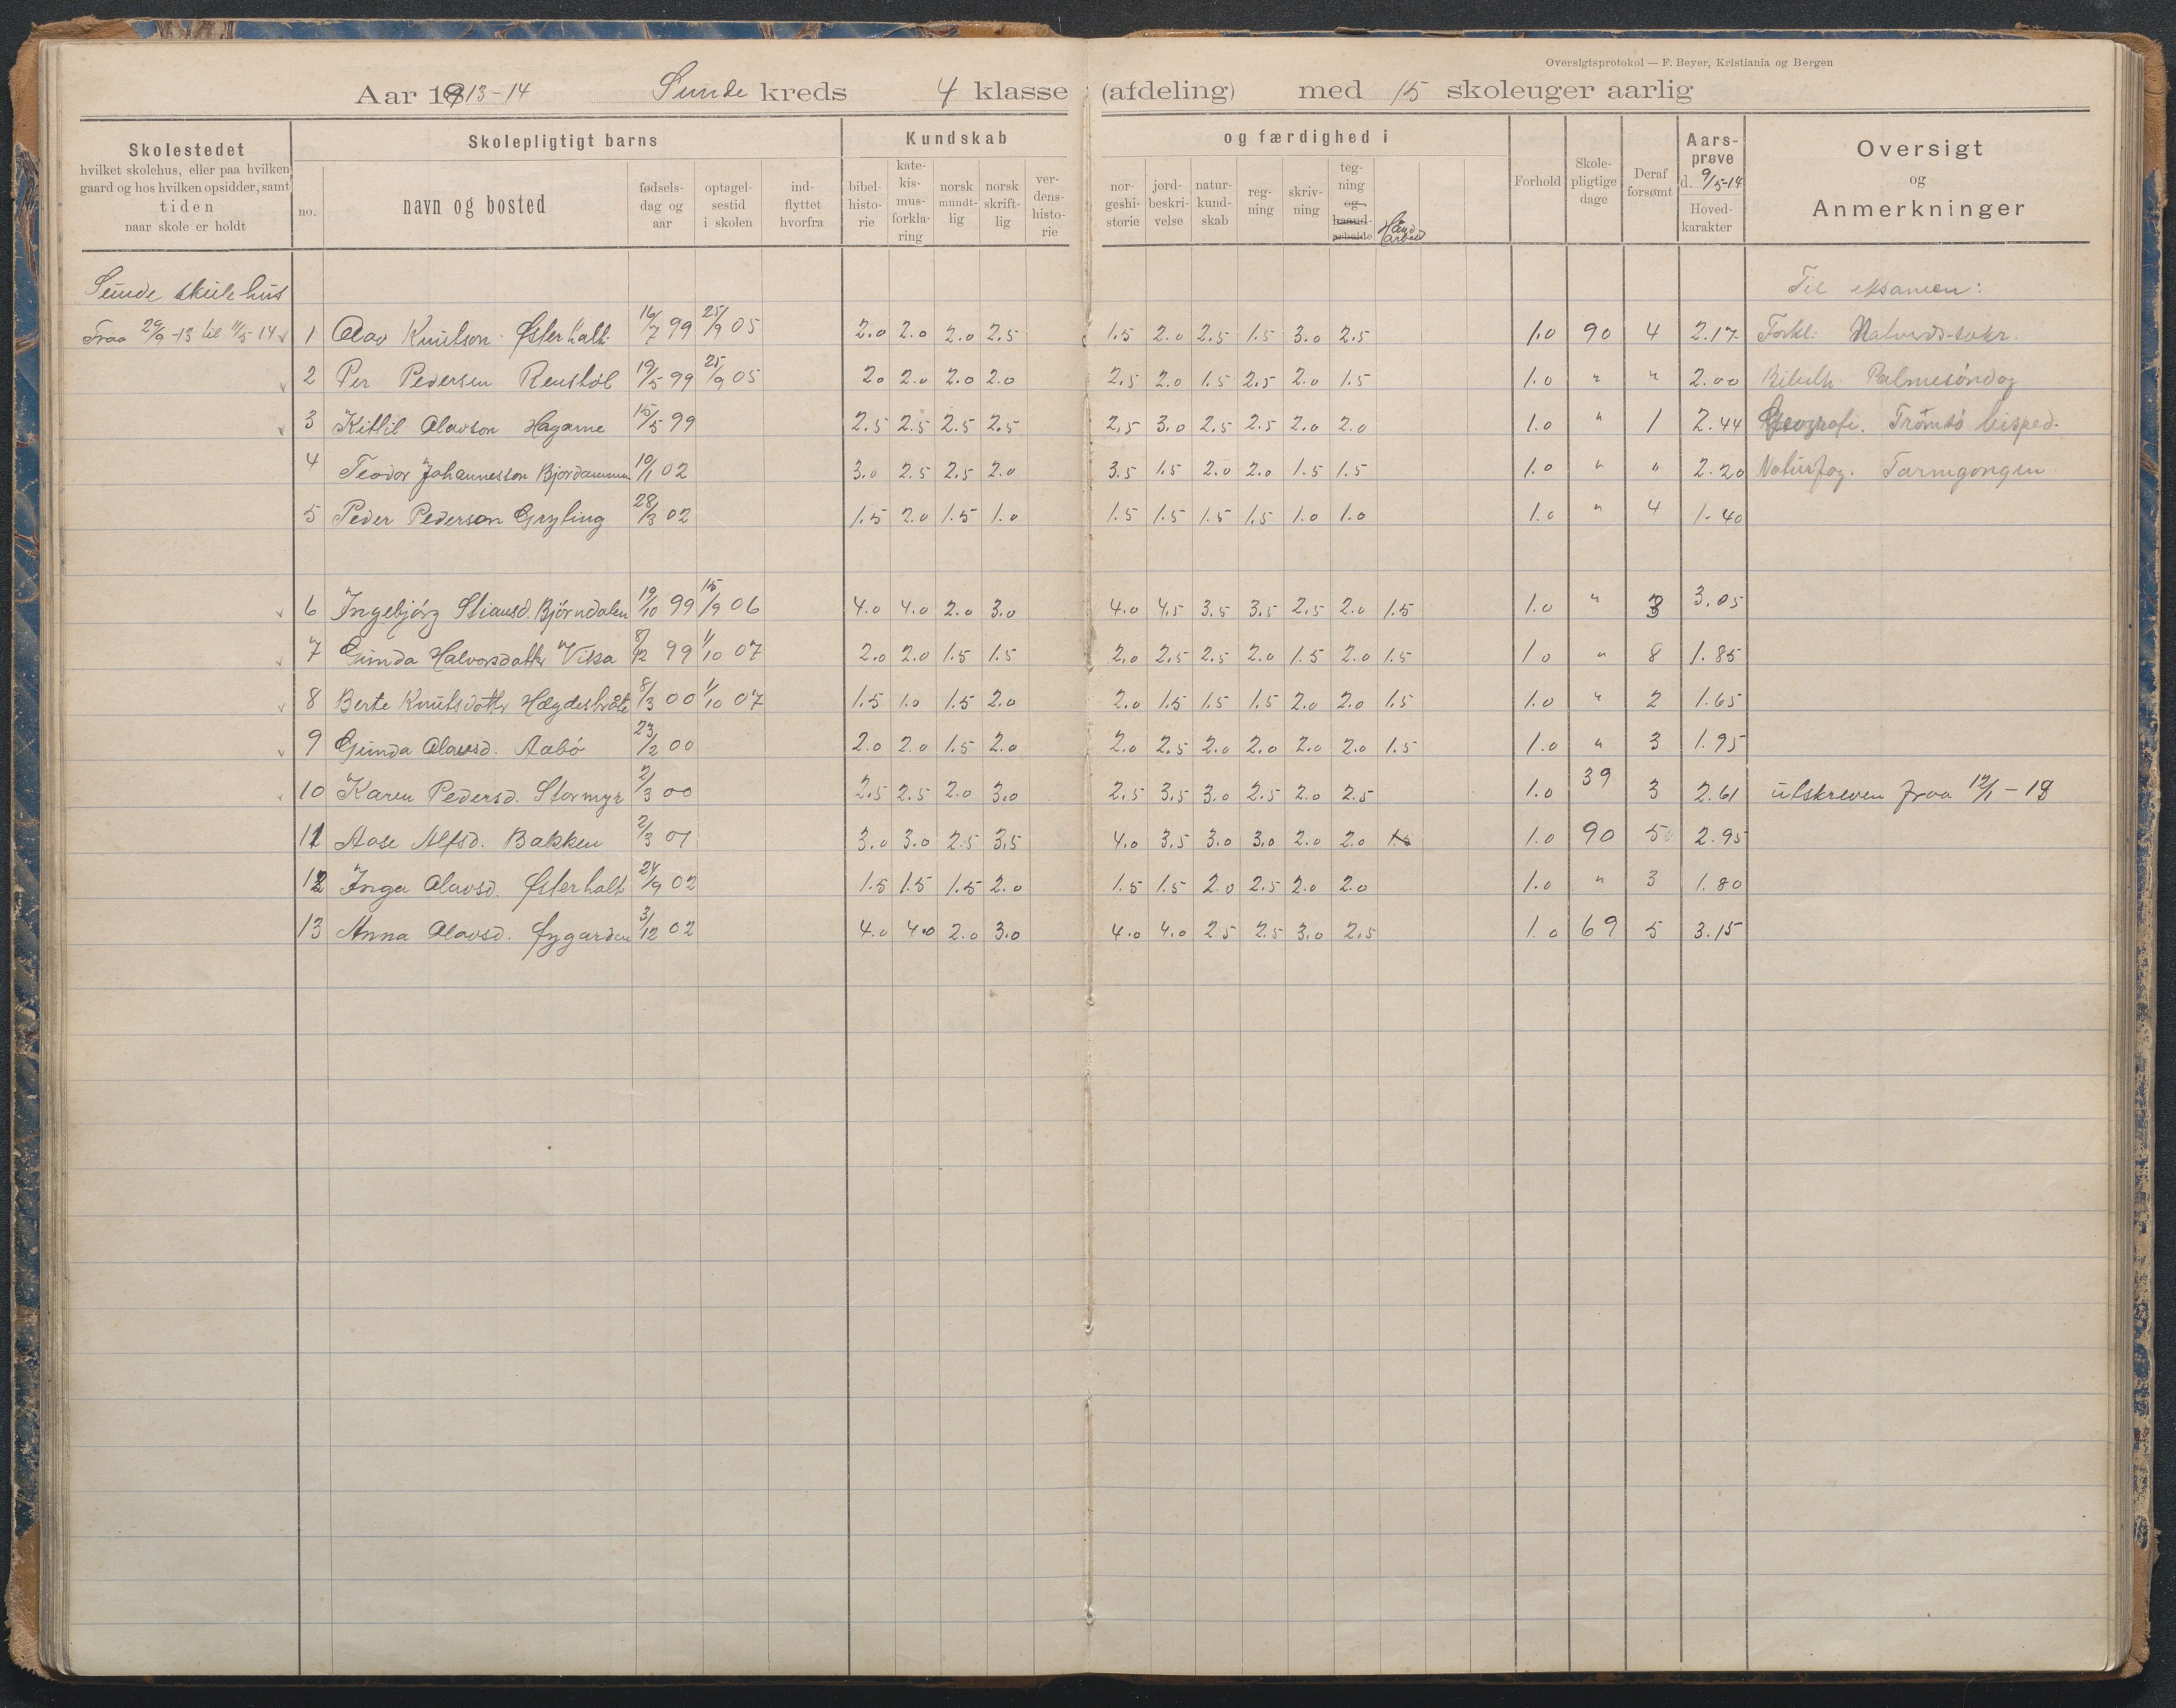 Oversigtsprotokol — F. Beyer, Kristiania og Bergen
Aar 1913-14 Sunde kreds 4 klasse (afdeling) med 15 skoleuger aarlig
Skolestedet hvilket skolehus, eller paa hvilken gaard og hos hvilken opsidder, samt tiden naar skole er holdt
Skolepligtigt barns
no. navn og bosted fødsels-dag og aar optagel-sestid i skolen ind-flyttet hvorfra
Kundskab og færdighed i
bibel-histo-rie kate-kis-mus-forkla-ring norsk mundt-lig norsk skrift-lig ver-dens-histo-rie nor-geshi-storie jord-beskri-velse natur-kund-skab reg-ning skriv-ning teg-ning og haand-arbeide Håndarbeid
Forhold Skole-pligtige dage Deraf forsømt Aars-prøve d. 9/5-14 Hoved-karakter
Oversigt og Anmerkninger
Sunde skulehus Til eksamen:
Fraa 29/9-13 til 11/5-14 1 Olav Knutson Østerholt 16/7 99 25/9 05 2.0 2.0 2.0 2.5 1.5 2.0 2.5 1.5 3.0 2.5 1.0 90 4 2.17 Forkl:
2 Per Pedersen Renshol 19/5 99 25/9 05 2.0 2.0 2.0 2.0 2.5 2.0 1.5 2.5 2.0 1.5 1.0 " " 2.00 Bibelh. Palmesøndag
3 Kittil Olavson Hagane 15/5 99 2.5 2.5 2.5 2.5 2.5 3.0 2.5 2.5 2.0 2.0 1.0 " 1 2.44 Geografi. Tromsö bisped.
4 Teodor Johannesson 10/1 02 3.0 2.5 2.5 2.0 3.5 1.5 2.0 2.0 1.5 1.5 1.0 " " 2.20 Naturfag. Tarmgongen
5 Peder Pederson Gryting 28/3 02 1.5 2.0 1.5 1.0 1.5 1.5 1.5 1.5 1.0 1.0 1.0 " 4 1.40
6 Ingebjörg Stiansd. Björndalen 19/10 99 15/9 06 4.0 4.0 2.0 3.0 4.0 4.5 3.5 3.5 2.5 2.0 1.5 1.0 " 3 3.05
7 Gunda Halvorsdotter Vika 8/12 99 1/10 07 2.0 2.0 1.5 1.5 2.0 2.5 2.5 2.0 1.5 2.0 1.5 1.0 " 8 1.85
8 Berte Knutsdotter 8/3 00 1/10 07 1.5 1.0 1.5 2.0 2.0 1.5 1.5 1.5 2.0 2.0 1.5 1.0 " 2 1.65
9 Gunda Olavsd. Aabö 23/2 00 2.0 2.0 1.5 2.0 2.0 2.5 2.0 2.0 2.0 2.0 1.5 1.0 " 3 1.95
10 Karen Pedersd. Stormyr 2/3 00 2.5 2.5 2.0 3.0 2.5 3.5 3.0 2.5 2.0 2.5 1.0 39 3 2.61 utskreven fraa 12/1 - 13
11 Aase Alfsd. Bakken 2/3 01 3.0 3.0 2.5 3.5 4.0 3.5 3.0 3.0 2.0 2.0 1.5 1.0 90 5 2.95
12 Inga Olavsd. Østerholt 24/9 02 1.5 1.5 1.5 2.0 1.5 1.5 2.0 2.5 2.0 2.0 1.0 " 3 1.80
13 Anna Olavsd. Øygarden 3/12 02 4.0 4.0 2.0 3.0 4.0 4.0 2.5 2.5 3.0 2.5 1.0 69 5 3.15